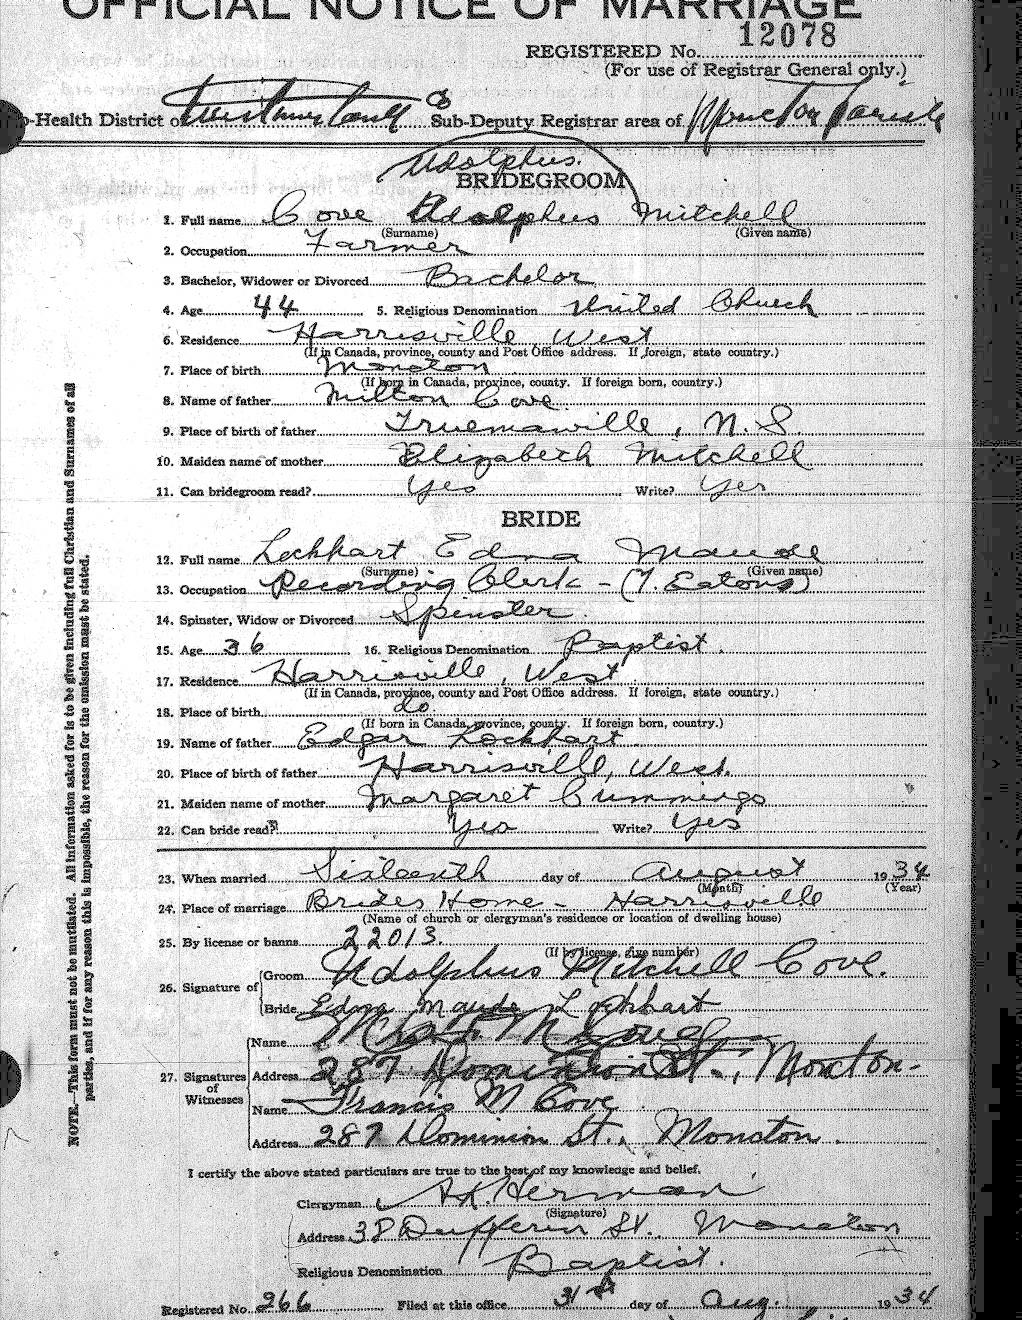 OFFICIAL NOTICE OF MARRIAGE
12078
REGISTERED No.
(For use of Registrar General only.)
-Health District of Westmorland Co Sub-Deputy Registrar area of Moncton Parish
Adolphus.
BRIDEGROOM
1. Full name Cove Adolphus Mitchell
(Surname) (Given name)
2. Occupation Farmer
3. Bachelor, Widower or Divorced Bachelor
4. Age 44 5. Religious Denomination United Church
6. Residence Harrisville West
(If in Canada, province, county and Post Office address. If foreign, state country.)
7. Place of birth Moncton
(If born in Canada, province, county. If foreign born, country.)
8. Name of father Milton Cove
9. Place of birth of father Truemanville, N.S.
10. Maiden name of mother Elizabeth Mitchell
11. Can bridegroom read? Yes Write? Yes
BRIDE
12. Full name Lockhart Edna Maude
(Surname) (Given name)
13. Occupation Recording Clerk - (T. Eatons)
14. Spinster, Widow or Divorced Spinster
15. Age 36 16. Religious Denomination Baptist.
17. Residence Harrisville, West
(If in Canada, province, county and Post Office address. If foreign, state country.)
18. Place of birth do.
(If born in Canada, province, county. If foreign born, country.)
19. Name of father Edgar Lockhart
20. Place of birth of father Harrisville, West.
21. Maiden name of mother Margaret Cummings
22. Can bride read? Yes Write? Yes
23. When married Sixteenth day of August 1934
(Month) (Year)
24. Place of marriage Brides Home - Harrisville
(Name of church or clergyman's residence or location of dwelling house)
25. By license or banns 22013.
(If by license, give number)
26. Signature of Groom Adolphus Mitchell Cove.
Bride Edna Maude Lockhart
27. Signatures of Witnesses
Name Mrs F. M Cove
Address 287 Dominion St., Moncton-
Name Francis M Cove
Address 287 Dominion St., Moncton.
I certify the above stated particulars are true to the best of my knowledge and belief.
Clergyman A.K. Herman
(Signature)
Address 38 Dufferin St. Moncton
Religious Denomination Baptist.
Registered No. 266 Filed at this office 31st day of Aug. 1934
NOTE.—This form must not be mutilated. All information asked for is to be given including full Christian and Surnames of all
parties, and if for any reason this is impossible, the reason for the omission must be stated.